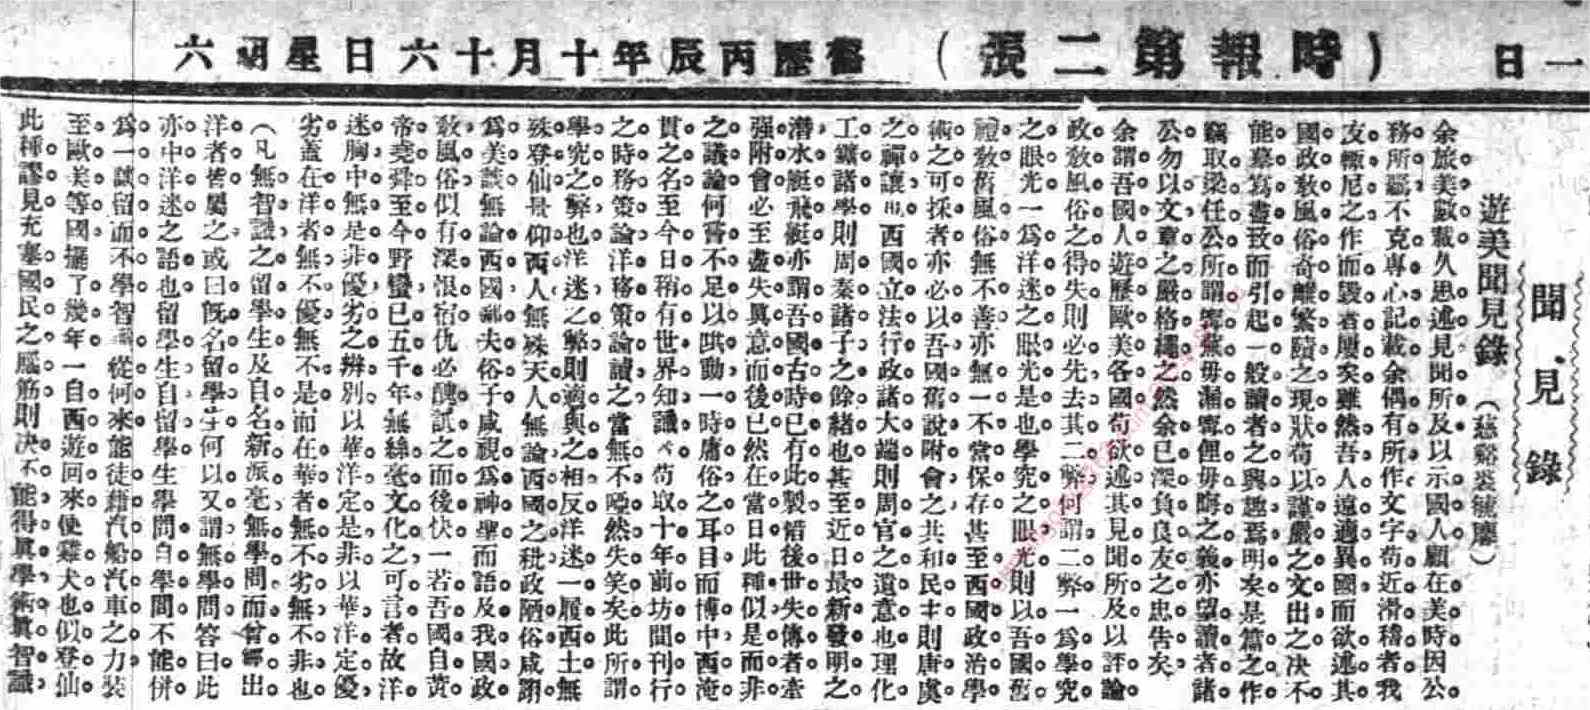 一日
(時報第二張)
舊歷丙辰年十月十六日星期六
聞見錄
遊美聞見錄 (慈谿裘毓麐)
余旅美數載久思述見聞所及以示國人顧在美時因公
務所羈不克專心記載余偶有所作文字苟近滑稽者我
友輒尼之作而毀者屢矣雖然吾人遠適異國而欲述其
國政敎風俗奇離繁賾之現狀苟以謹嚴之文出之決不
能摹寫盡致而引起一般讀者之興趣焉明矣是篇之作
竊取梁任公所謂寧蕪毋漏寧俚毋晦之義亦望讀者諸
公勿以文章之嚴格繩之然余已深負良友之忠告矣
余謂吾國人遊歷歐美各國苟欲述其見聞所及以評論
政敎風俗之得失則必先去其二弊何謂二弊一爲學究
之眼光一爲洋迷之眼光是也學究之眼光則以吾國舊
禮敎舊風俗無不善亦無一不當保存甚至西國政治學
術之可採者亦必以吾國舊說附會之共和民主則唐虞
之禪讓也西國立法行政諸大端則周官之遺意也理化
工鑛諸學則周秦諸子之餘緒也甚至近日最新發明之
潛水艇飛艇亦謂吾國古時已有此製惜後世失傳者牽
强附會必至盡失眞意而後已然在當日此種似是而非
之議論何嘗不足以哄動一時庸俗之耳目而博中西淹
貫之名至今日稍有世界知識者苟取十年前坊間刊行
之時務策論洋務策論讀之當無不啞然失笑矣此所謂
學究之弊也洋迷之弊則適與之相反洋迷一履西土無
殊登仙景仰西人無殊天人無論西國之秕政陋俗咸詡
爲美談無論西國鄙夫俗子咸視爲神聖而語及我國政
敎風俗似有深恨宿仇必醜詆之而後快一若吾國自黃
帝堯舜至今野蠻已五千年無絲毫文化之可言者故洋
迷胸中無是非優劣之辨別以華洋定是非以華洋定優
劣蓋在洋者無不優無不是而在華者無不劣無不非也
(凡無智識之留學生及自名新派毫無學問而曾歸出
洋者皆屬之或曰旣名留學生何以又謂無學問答曰此
亦中洋迷之語也留學生自留學生學問自學問不能併
爲一談留而不學智識從何來能徒藉汽船汽車之力裝
至歐美等國擺了幾年一自西遊回來便雞犬也似登仙
此種謬見充塞國民之腦筋則決不能得眞學術眞智識